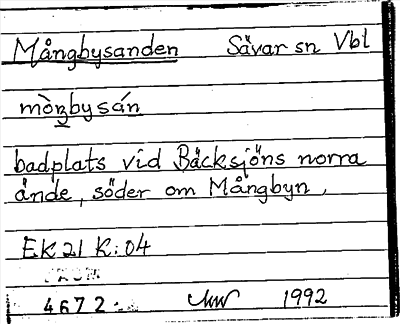 Mångbysanden Sävar sn Vbl
mòŋbysán
badplats vid Bäcksjöns norra
ände, söder om Mångbyn.
EK 21 K:04
4672 1992